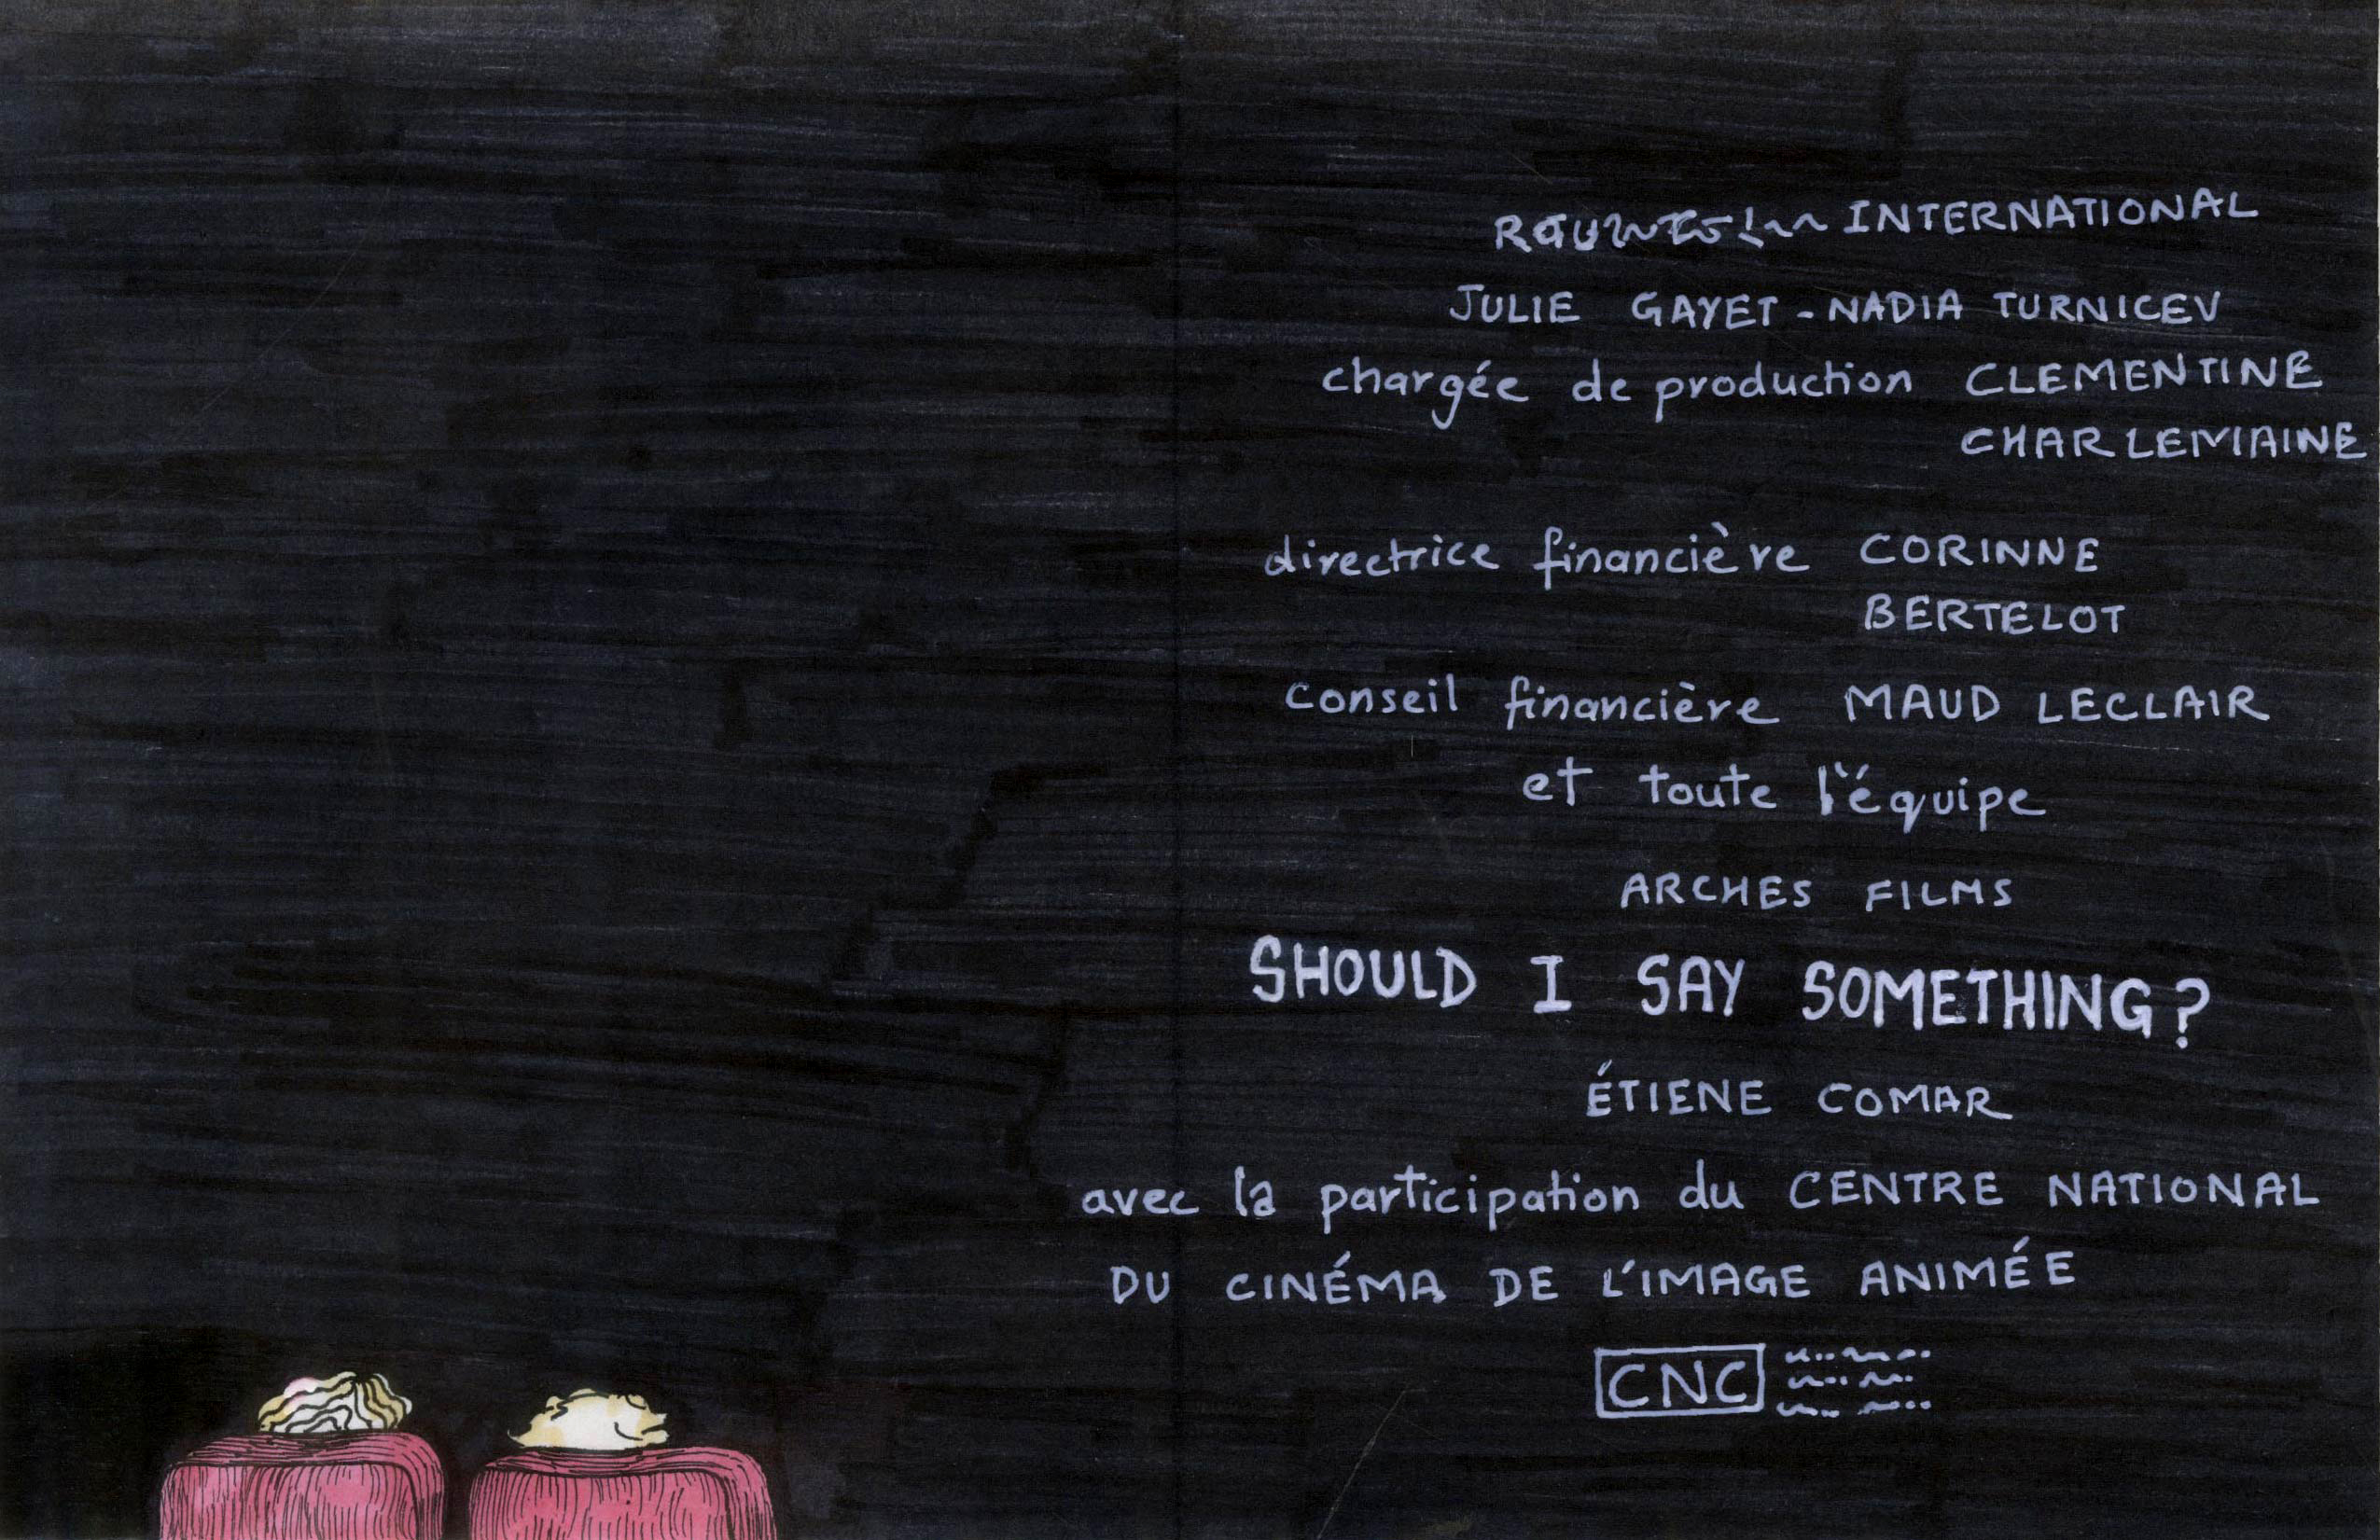 INTERNATIONAL
JULIE GAYET - NADIA TURNICEV
chargée de production CLEMENTINE
CHARLEMAINE
directrice financière CORINNE
BERTELOT
conseil financière MAUD LECLAIR
et toute l'équipe
ARCHES FILMS
SHOULD I SAY SOMETHING?
ÉTIENE COMAR
avec la participation du CENTRE NATIONAL
DU CINÉMA DE L'IMAGE ANIMÉE
CNC